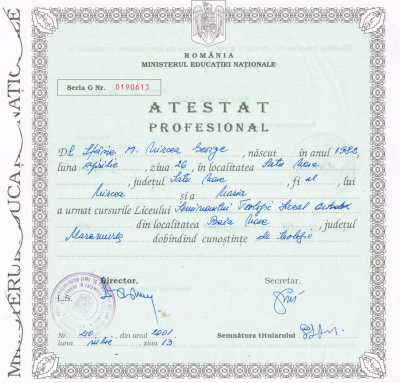 ROMÂNIA
MINISTERUL EDUCAȚIEI NAȚIONALE
Seria G Nr. 0190613
ATESTAT
PROFESIONAL
Dl M. Mircea George, născut în anul 1982,
luna aprilie, ziua 26, în localitatea Satu Mare
, județul Satu Mare, fi al, lui
Mircea și a Maria
a urmat cursurile Liceului Seminarului Teologic Liceal Ortodox
din localitatea Baia Mare, județul
Maramureș dobîndind cunoștințe de Teologie
Director,
Secretar,
L.S.
Nr. 210 din anul 2001
luna ziua 13
Semnătura titularului